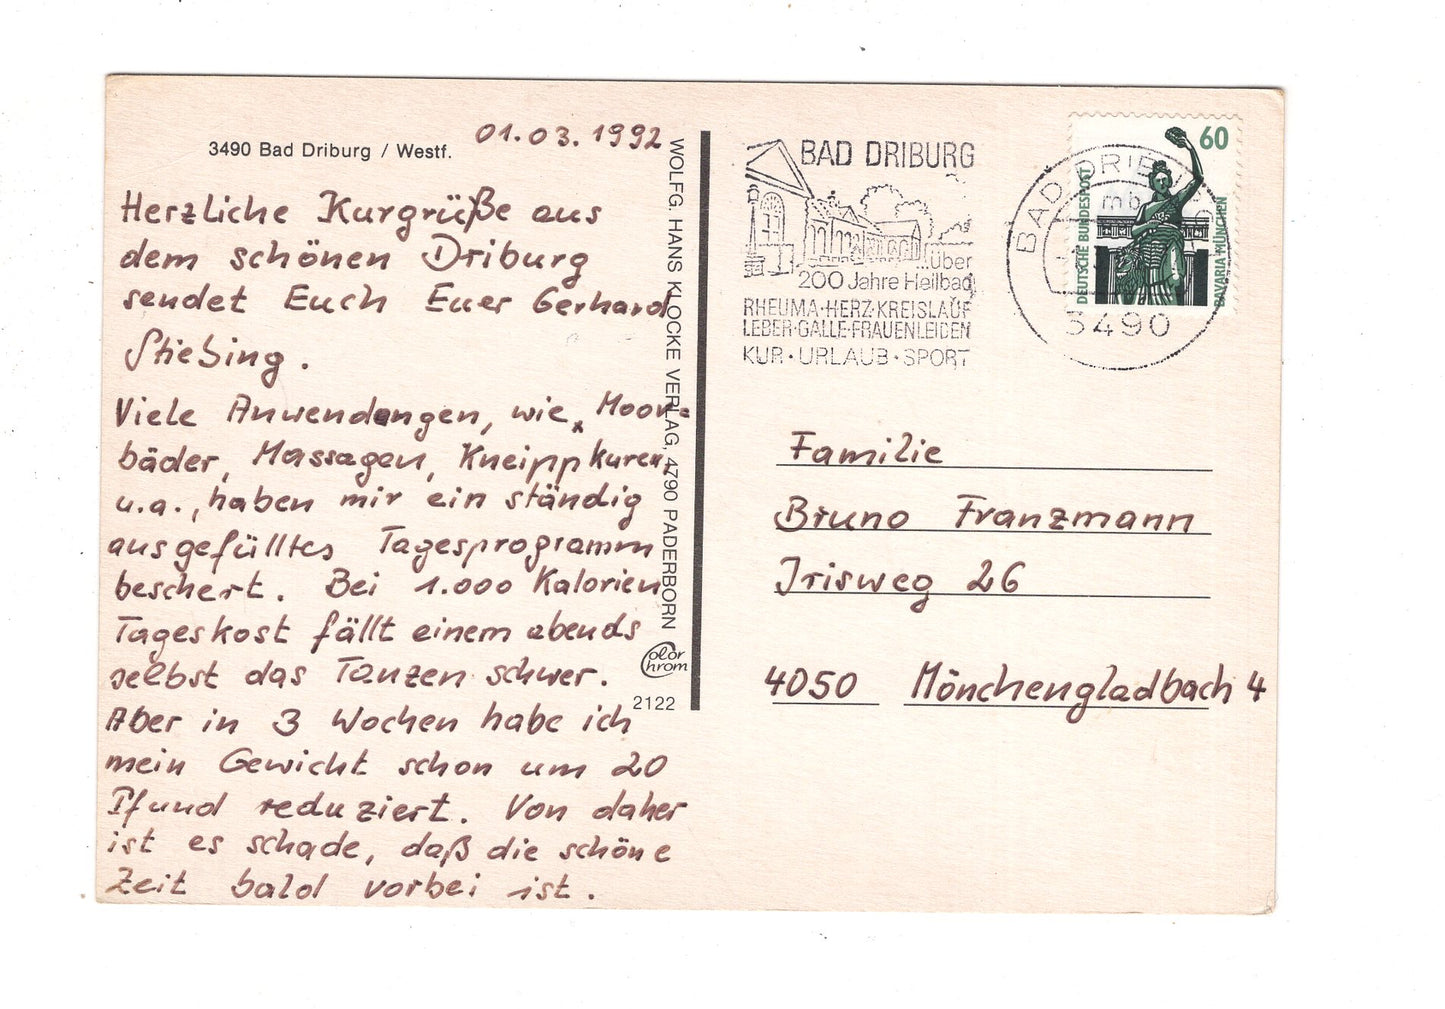 3490 Bad Driburg / Westf.
01.03.1992
Herzliche Kurgrüße aus
dem schönen Driburg
sendet Euch Euer Gerhard
Stiebing.
Viele Anwendungen, wie, Moor-
bäder, Massagen, Kneippkuren,
u.a., haben mir ein ständig
ausgefülltes Tagesprogramm
beschert. Bei 1.000 Kalorien
Tageskost fällt einem abends
selbst das Tanzen schwer.
Aber in 3 Wochen habe ich
mein Gewicht schon um 20
Pfund reduziert. Von daher
ist es schade, daß die schöne
Zeit bald vorbei ist.
WOLFG. HANS KLOCKE VERLAG, 4790 PADERBORN
Color
Chrom
2122
BAD DRIBURG
...über
200 Jahre Heilbad
RHEUMA·HERZ·KREISLAUF
LEBER·GALLE·FRAUENLEIDEN
KUR·URLAUB·SPORT
BAD DRIBURG
mb
3490
60
DEUTSCHE BUNDESPOST
BAVARIA MÜNCHEN
Familie
Bruno Franzmann
Irisweg 26
4050 Mönchengladbach 4